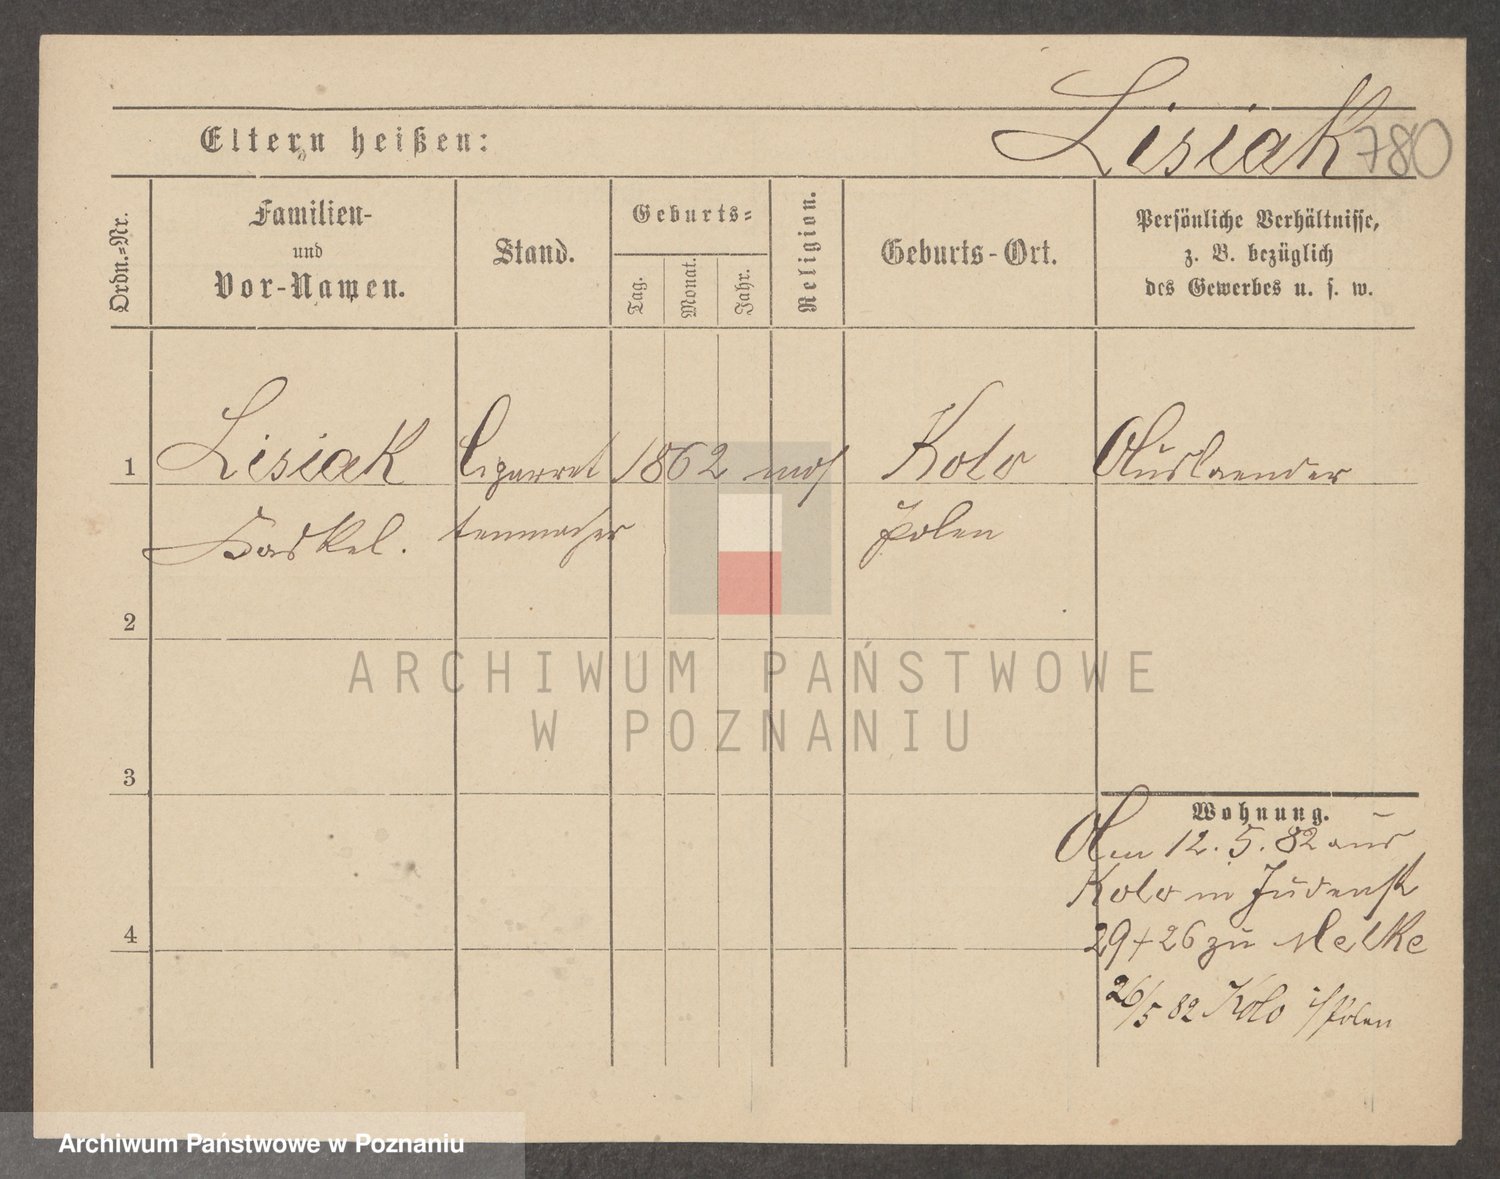 Lisiak 780
Eltern heißen:
Ordn.-Nr.
Familien-
und
Vor-Namen.
Stand.
Geburts-
Tag.
Monat.
Jahr.
Religion.
Geburts-Ort.
Persönliche Verhältnisse,
z. B. bezüglich
des Gewerbes u. s. w.
1 Lisiak Cigarret 1862 mos Kolo Auslaender
Haskel. tenmacher Polen
2
3
Wohnung.
Am 12. 5. 82 aus
Kolo in Judenst
4
29 + 26 zu Melke
26/5 82 Kolo i/Polen
ARCHIWUM PAŃSTWOWE
W POZNANIU
Archiwum Państwowe w Poznaniu